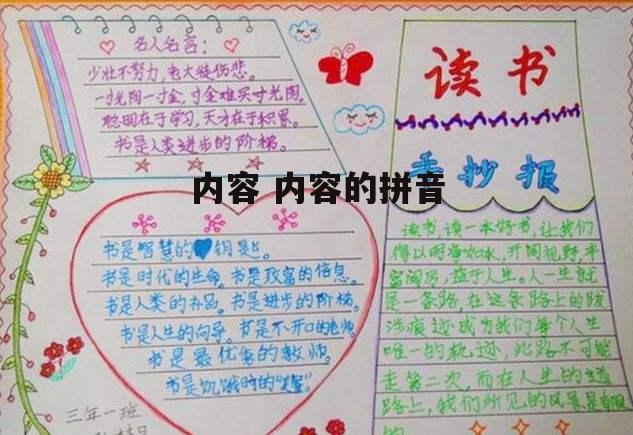 名人名言：
少壮不努力，老大徒伤悲。
一寸光阴一寸金，寸金难买寸光阴。
聪明在于学习，天才在于积累。
书是人类进步的阶梯。
读书
手抄报
内容 内容的拼音
书是智慧的钥匙。
书是时代的生命。书是致富的信息。
书是人类的补品。书是进步的阶梯。
书是人生的向导。书是不开口的老师。
书是最优秀的教师。
书是饥饿时的
三年一班
读书，读一本好书，让我们
得以明净如水，开阔视野，丰
富阅历，益于人生。人一生就
是一条路，在这条路上的跋
涉痕迹成为我们每个人生
唯一的轨迹，此路不可能
走第二次，而在人生的道
路上，我们所见的风景是有限
的